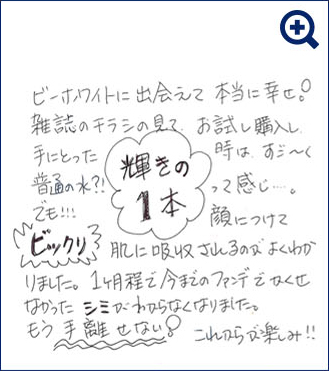 ビーホワイトに出会えて 本当に幸せ。
雑誌のチラシの見て、お試し購入し、
手にとった 時は、すご〜く
普通の水?! って感じ…。
輝きの
1本
でも!!! 顔につけて
ビックリ 肌に吸収されるのがよくわか
りました。1ヶ月程で今までのファンデでかくせ
なかった シミがわからなくなりました。
もう手離せない! これからが楽しみ!!